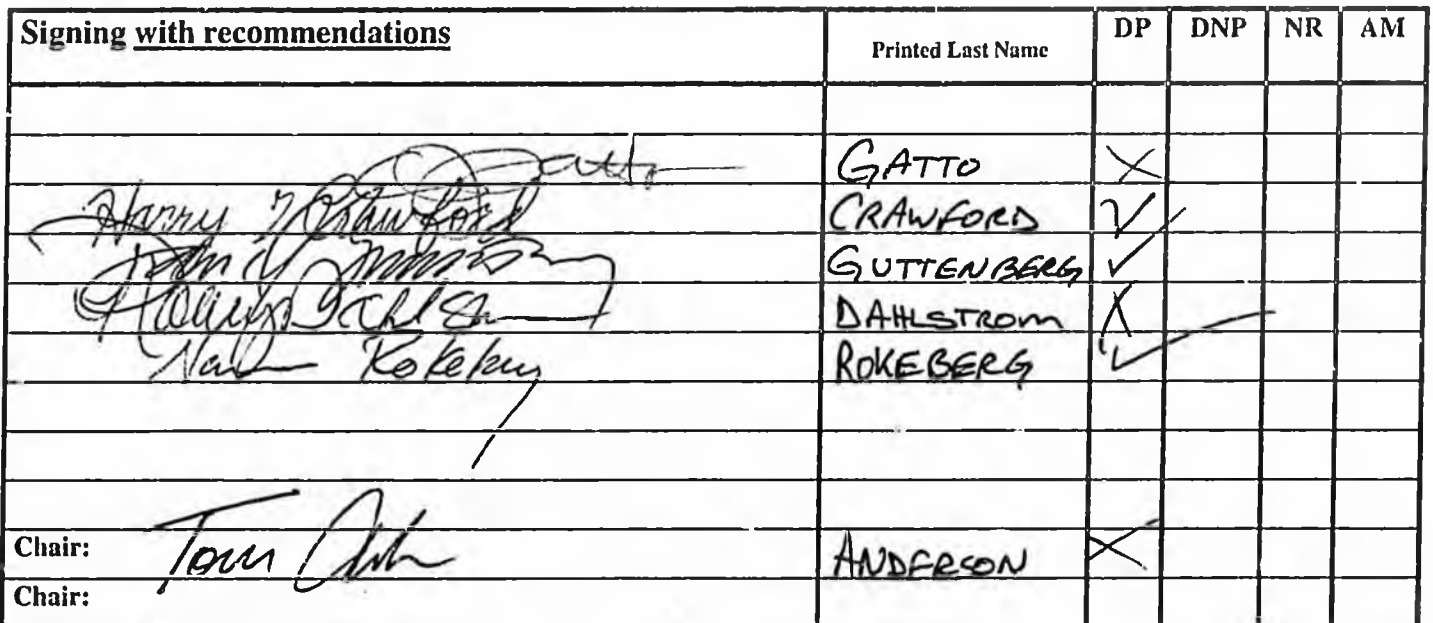 Signing with recommendations Printed Last Name DP DNP NR AM
Gatto GATTO X
Harry Crawford CRAWFORD ✓
GUTTENBERG ✓
DAHLSTROM X
Rokeberg ROKEBERG ✓
Chair: Tom ANDERSON X
Chair: